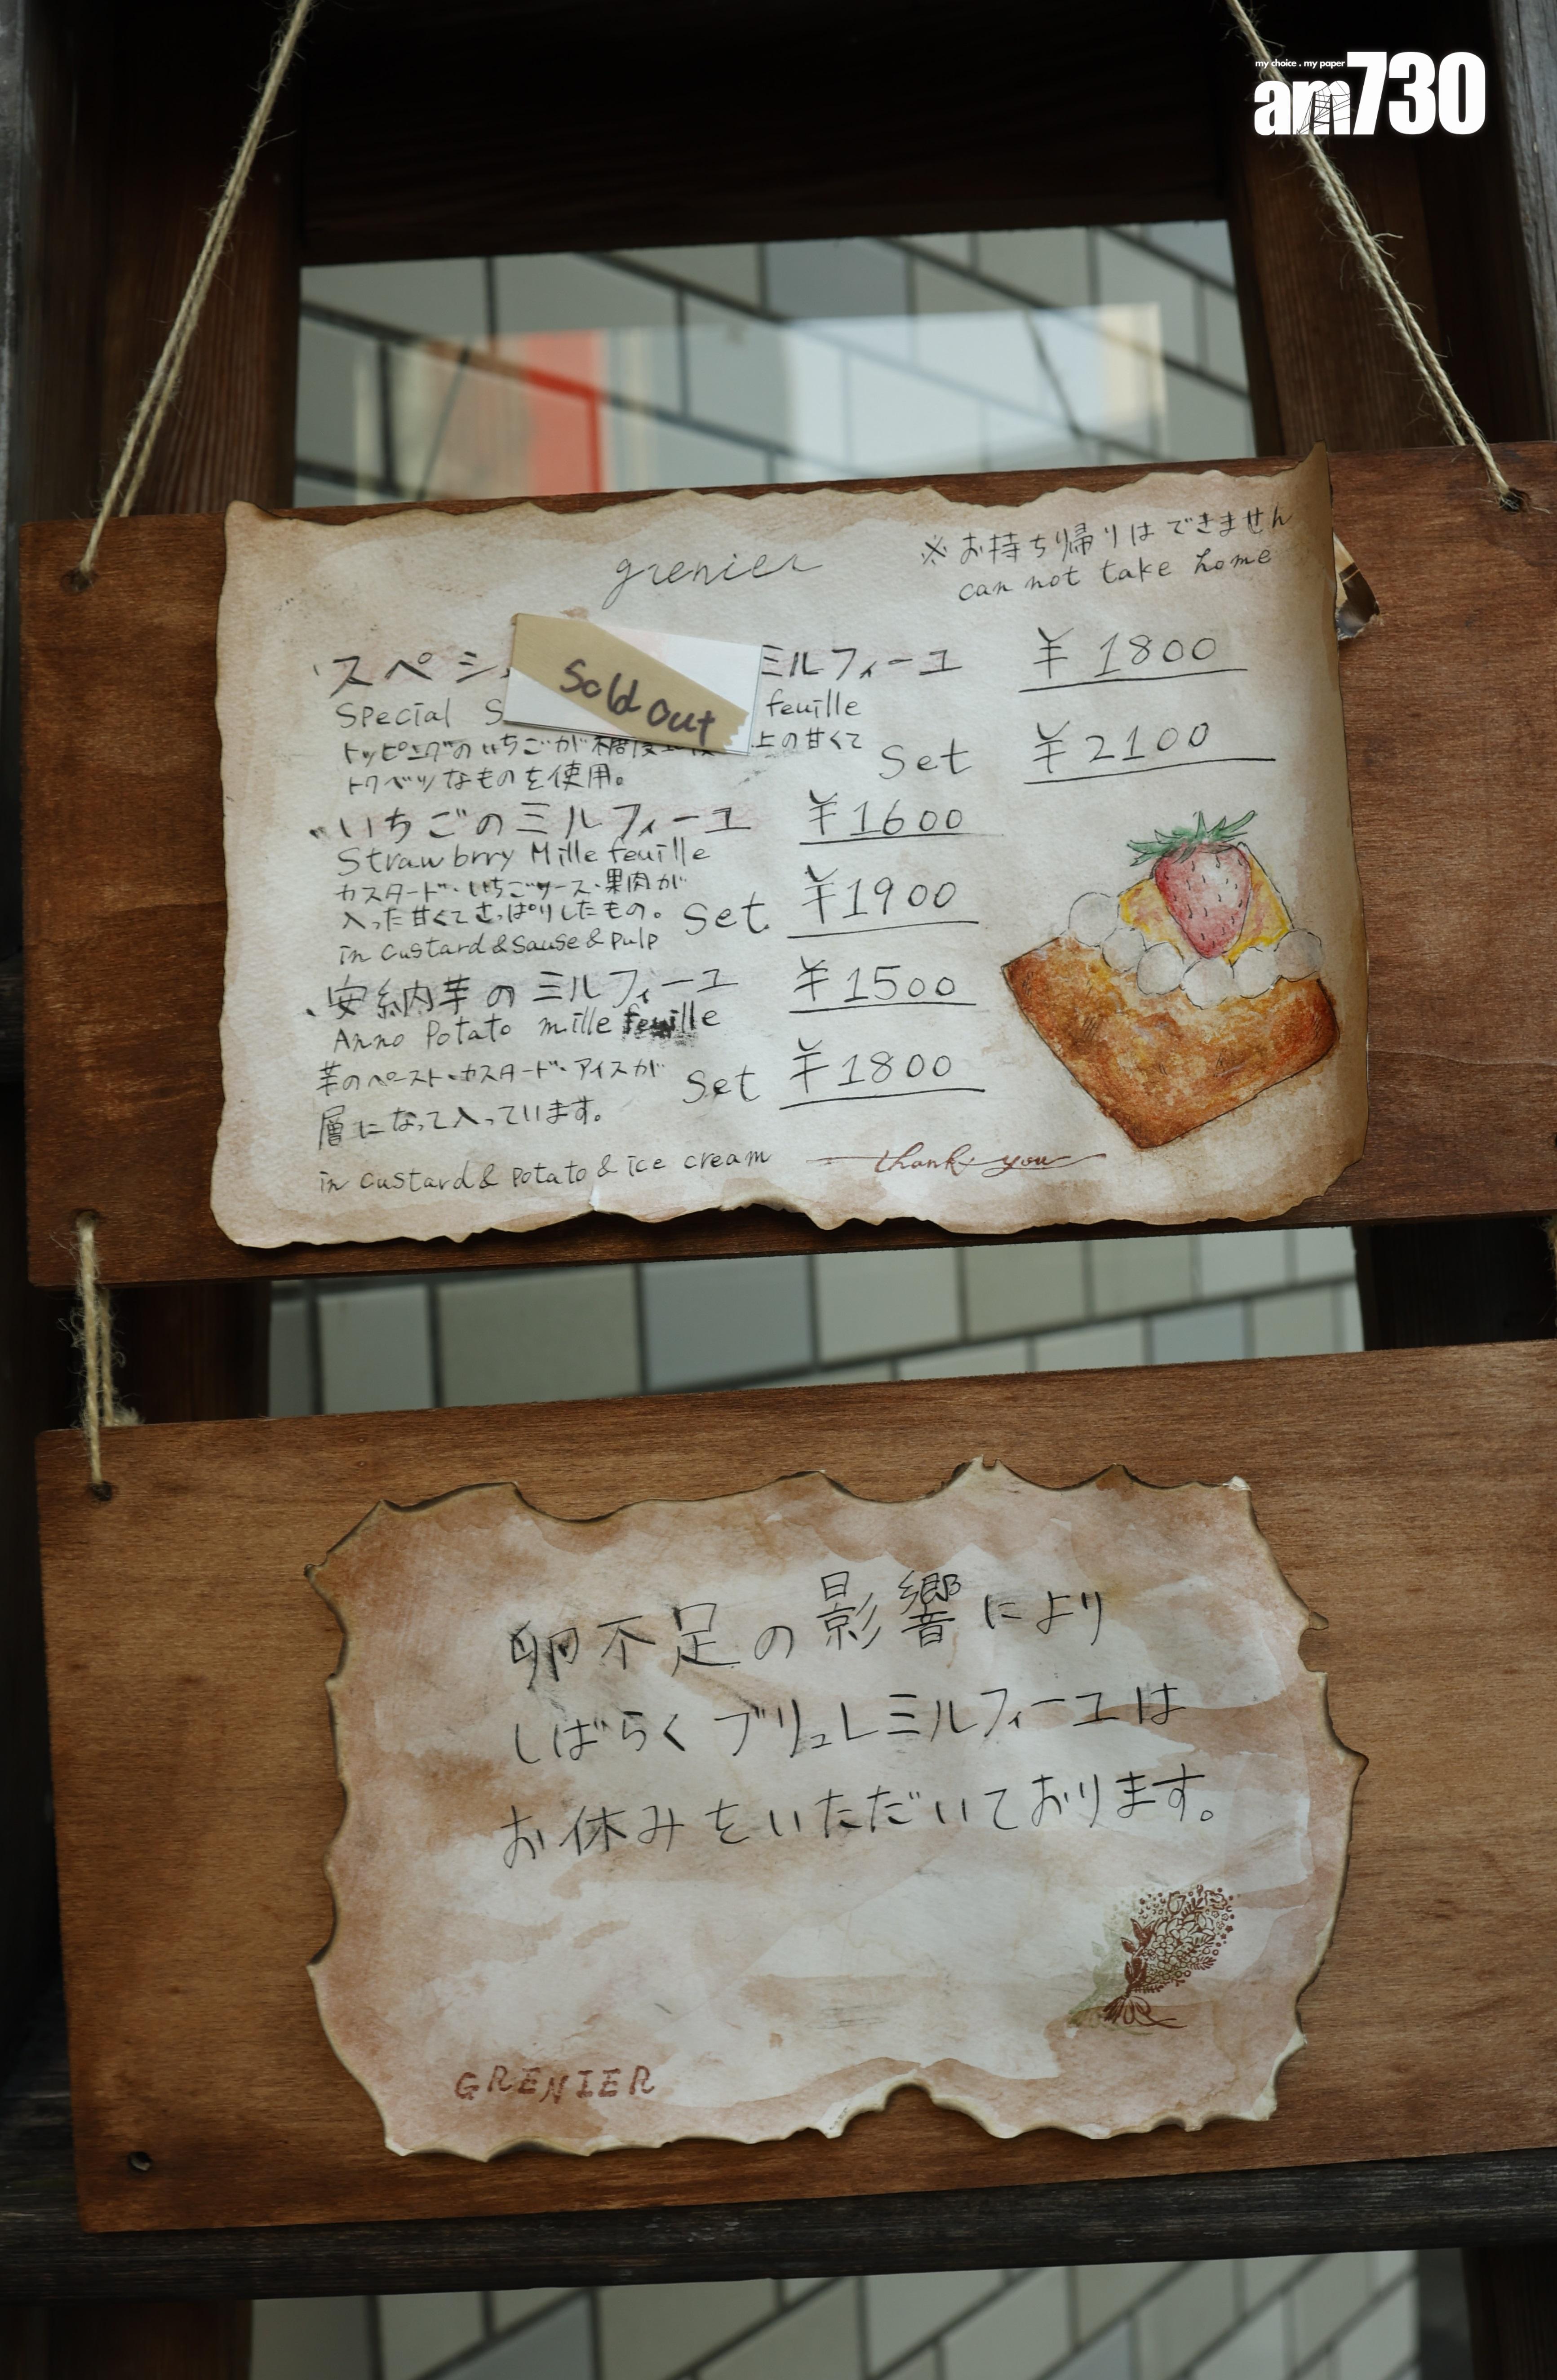 my choice . my paper
am730
grenier
※お持ち帰りはできません
can not take home
・スペシ
ミルフィーユ ¥1800
Sold out
Special S
feuille
トッピングのいちごが糖度
上の甘くて
Set ¥2100
トクベツなものを使用。
・いちごのミルフィーユ ¥1600
Strawbrry Mille feuille
カスタード・いちごソース・果肉が
入った甘くてさっぱりしたもの。 Set ¥1900
in custard & Sause & pulp
・安納芋のミルフィーユ ¥1500
Anno Potato mille feuille
芋のペースト・カスタード・アイスが Set ¥1800
層になって入っています。
in custard & potato & ice cream
thank you
卵不足の影響により
しばらくブリュレミルフィーユは
お休みをいただいております。
GRENIER